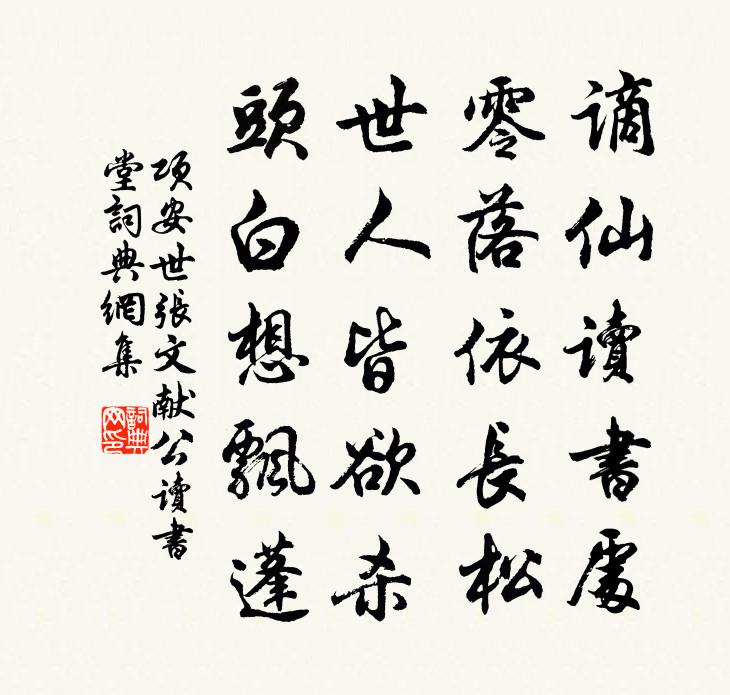 謫仙讀書處
零落依長松
世人皆欲杀
頭白想飄蓬
項安世張文献公讀書
堂詞典網集
詞典网印